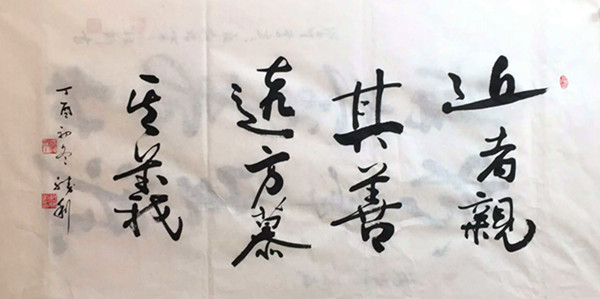 近者親
其善
遠方慕
其義
丁酉初冬 勝利